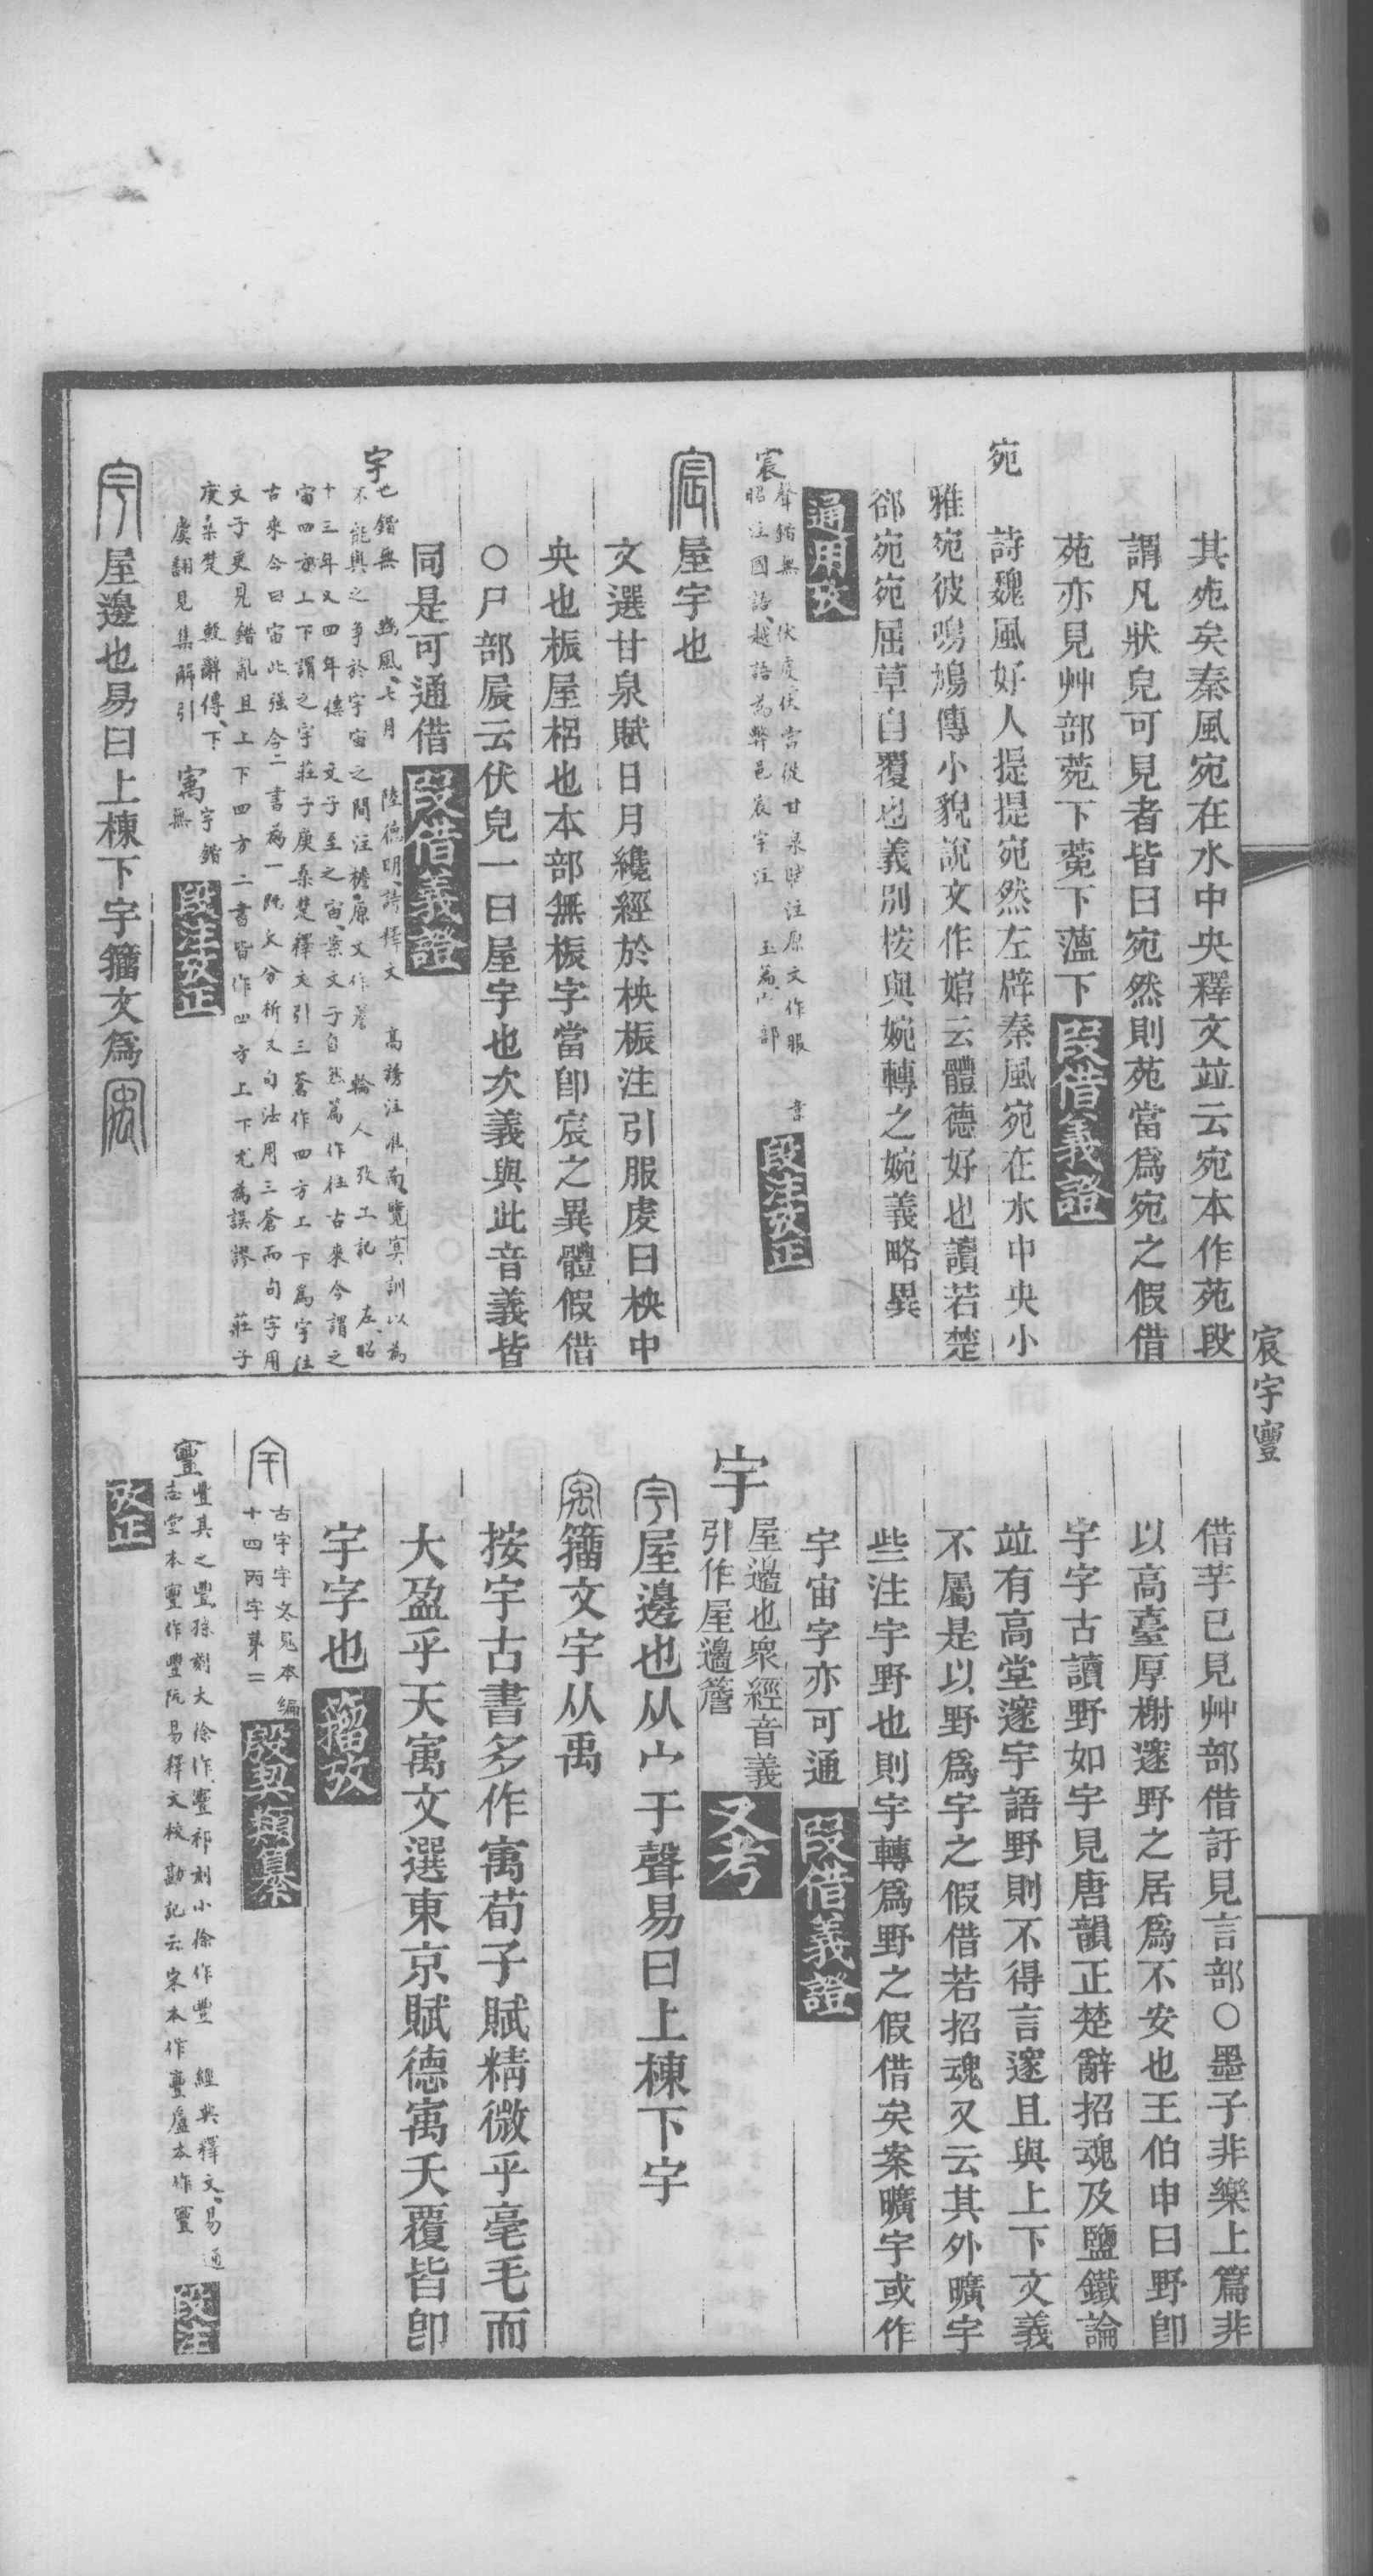 其宛矣秦風宛在水中央釋文竝云宛本作苑段
謂凡狀皃可見者皆曰宛然則苑當爲宛之假借
苑亦見艸部菀下薧下薀下 叚借義證
宛 詩魏風好人提提宛然左辟秦風宛在水中央小
雅宛彼鳴鳩傳小貌說文作婠云體德好也讀若楚
郤宛宛屈草自覆也義別桉與婉轉之婉義略異
通用攷
宸 聲鍇無 伏虔伏當從甘泉賦注原文作服 韋
昭注國語、越語爲弊邑宸宇注 玉篇宀部 段注攷正
屋宇也
文選甘泉賦日月纔經於柍桭注引服虔曰柍中
央也桭屋梠也本部無桭字當卽宸之異體假借
○尸部㞟云伏皃一曰屋宇也次義與此音義皆
同是可通借 叚借義證
宇 也鍇無 豳風、七月 陸德明、詩釋文 高誘注淮南覽冥訓以爲
不能與之爭於宇宙之間注檐、原文作簷 輪人 攷工記 左、昭
十三年又四年傳 文子至之宙、案文子自然篇作往古來今謂之
宙四方上下謂之宇莊子庚桑楚釋文引三蒼作四方上下爲宇往
古來今曰宙此強合二書爲一旣欠分析又句法用三蒼而句字用
文子更見錯亂且上下四方二書皆作四方上下尤爲誤謬 莊子
庚桑楚 繫辭傳、下 寓字鍇
虞翻見集解引 無 段注攷正
屋邊也易曰上棟下宇籒文爲
宸宇寷
借芋已見艸部借訏見言部○墨子非樂上篇非
以高臺厚榭邃野之居爲不安也王伯申曰野卽
宇字古讀野如宇見唐韻正楚辭招魂及鹽鐵論
竝有高堂邃宇語野則不得言邃且與上下文義
不屬是以野爲宇之假借若招魂又云其外曠宇
些注宇野也則宇轉爲野之假借矣案曠宇或作
宇宙字亦可通 叚借義證
宇 屋邊也衆經音義
引作屋邊簷 又考
屋邊也从宀于聲易曰上棟下宇
籒文宇从禹
按宇古書多作寓荀子賦精微乎毫毛而
大盈乎天寓文選東京賦德寓天覆皆卽
宇字也 籒攷
古宇字文見本編
十四丙字第二 殷契類纂
寷 豐其之豐、孫刻大徐作寷祁刻小徐作豐 經典釋文、易 通
志堂本寷作豐阮易釋文校勘記云宋本作寷盧本作寷 段注
攷正